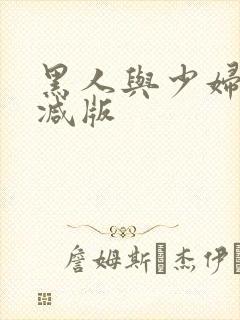 黑人與少婦
减版
詹姆斯·杰伊·